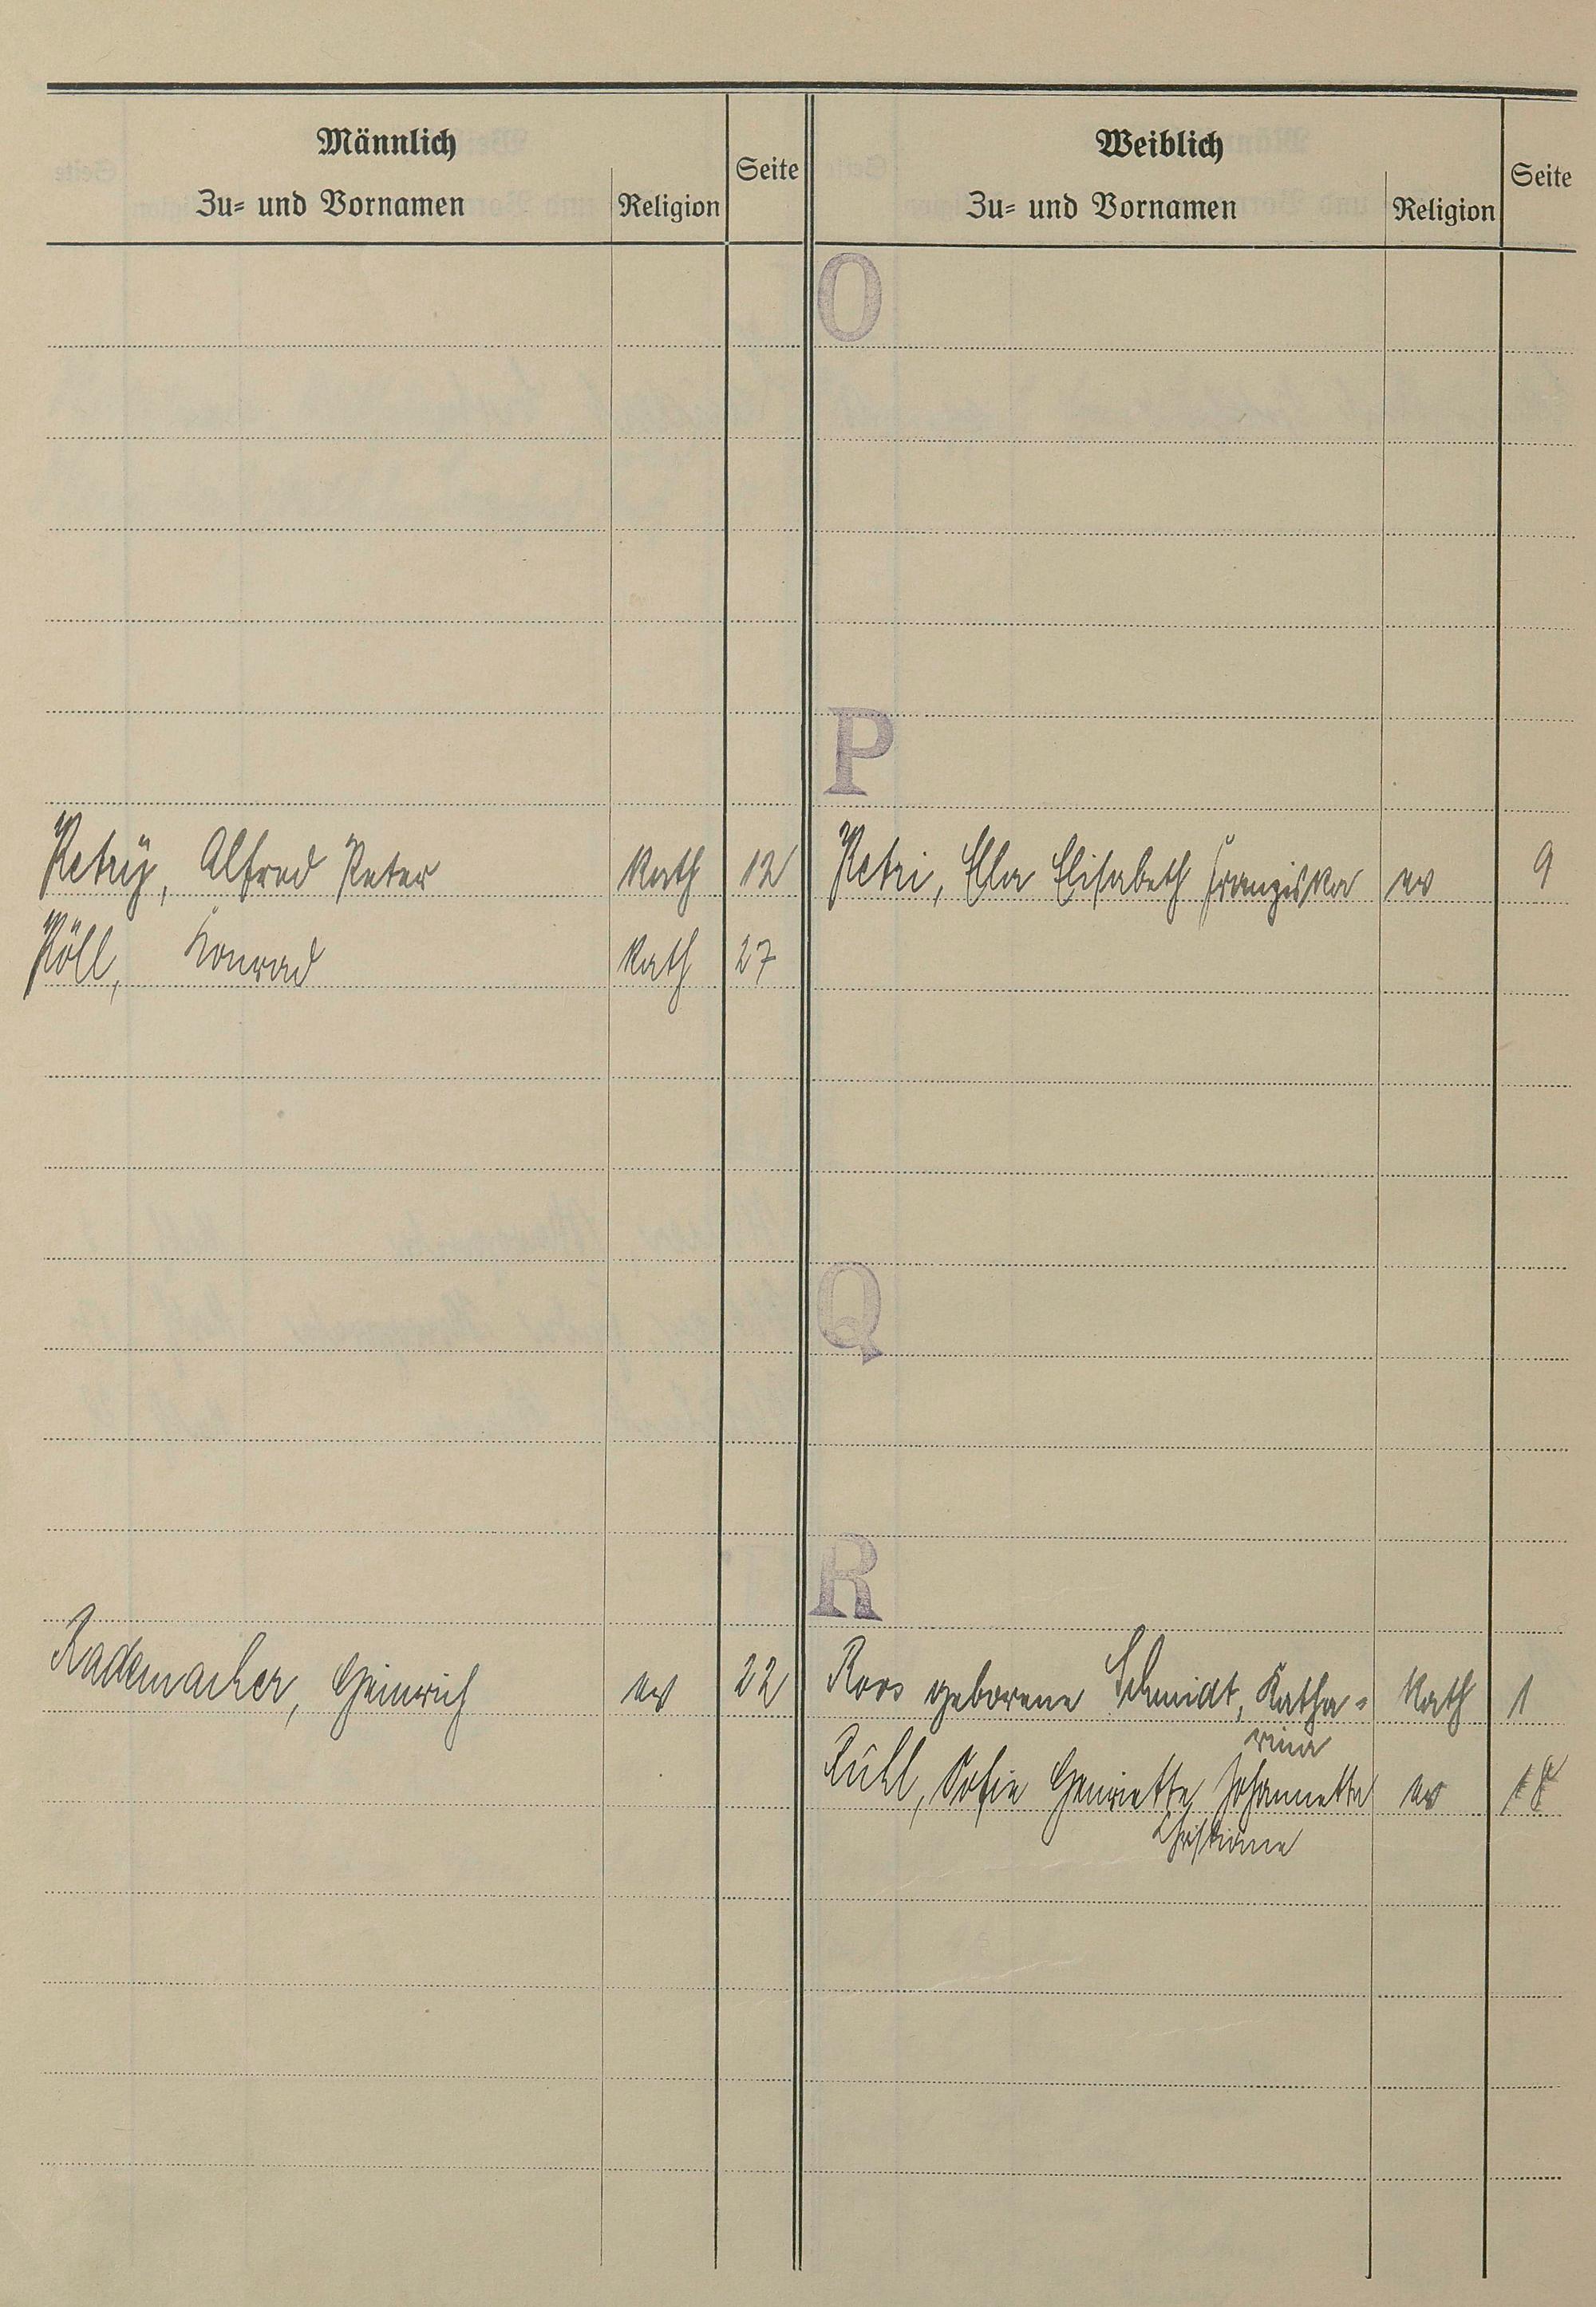 Männlich
Zu- und Vornamen
Religion
Seite
Weiblich
Zu- und Vornamen
Religion
Seite
O
P
Petrÿ, Alfred Peter kath 12
Petri, Ella Elisabeth Franziska ev 9
Pöll, Konrad kath 27
Q
R
Rademacher, Heinrich ev 22
Roos geborene Schmidt, Katha- kath 1
rina
Rühl, Sofie Henriette Johannette ev 18
Christiane